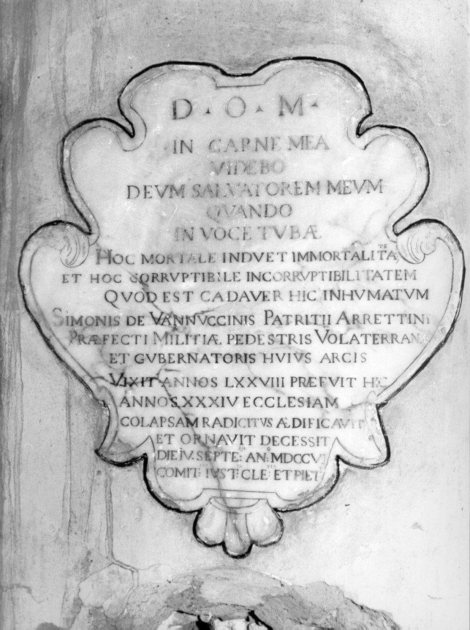 D · O · M ·
IN CARNE MEA
VIDEBO
DEVM SALVATOREM MEVM
QVANDO
IN VOCE TVBÆ
HOC MORTALE INDVET IMMORTALITATĒ
ET HOC CORRUPTIBILE INCORRUPTIBILITATEM
QUOD EST CADAVER HIC INHUMATUM
SIMONIS DE VANNVCCINIS PATRITII ARRETTINI
PRÆFECTI MILITIÆ PEDESTRIS VOLATERRAN
ET GVBERNATORIS HVIVS ARCIS
VIXIT ANNOS LXXVIII PREFVIT HIC
ANNOS XXXIV ECCLESIAM
COLAPSAM RADICITVS ÆDIFICAVIT
ET ORNAVIT DECESSIT
DIE IV SEPTE: AN: MDCCV
COMIT: IVST: CLE: ET PIET: